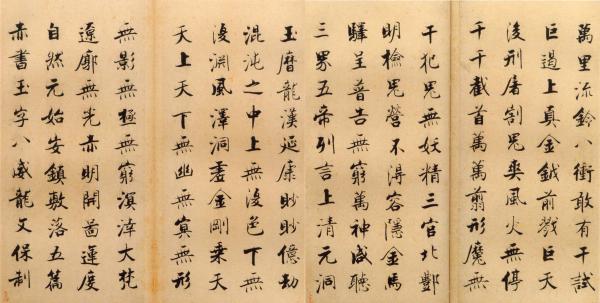 萬里流鈴八衝敢有干試
巨遏上真金鉞前戮巨天
後刑屠割鬼爽風火無停
千千截首萬萬翦形魔無
干犯鬼無妖精三官北酆
明檢鬼營不得容隱金馬
驛呈普告無窮萬神咸聽
三界五帝列言上清元洞
玉曆龍漢延康眇眇億劫
混沌之中上無復色下無
復淵風澤洞虛金剛乘天
天上天下無幽無冥無形
無影無極無窮溟涬大梵
遼廓無光赤明開圖運度
自然元始安鎮敷落五篇
赤書玉字八威龍文保制